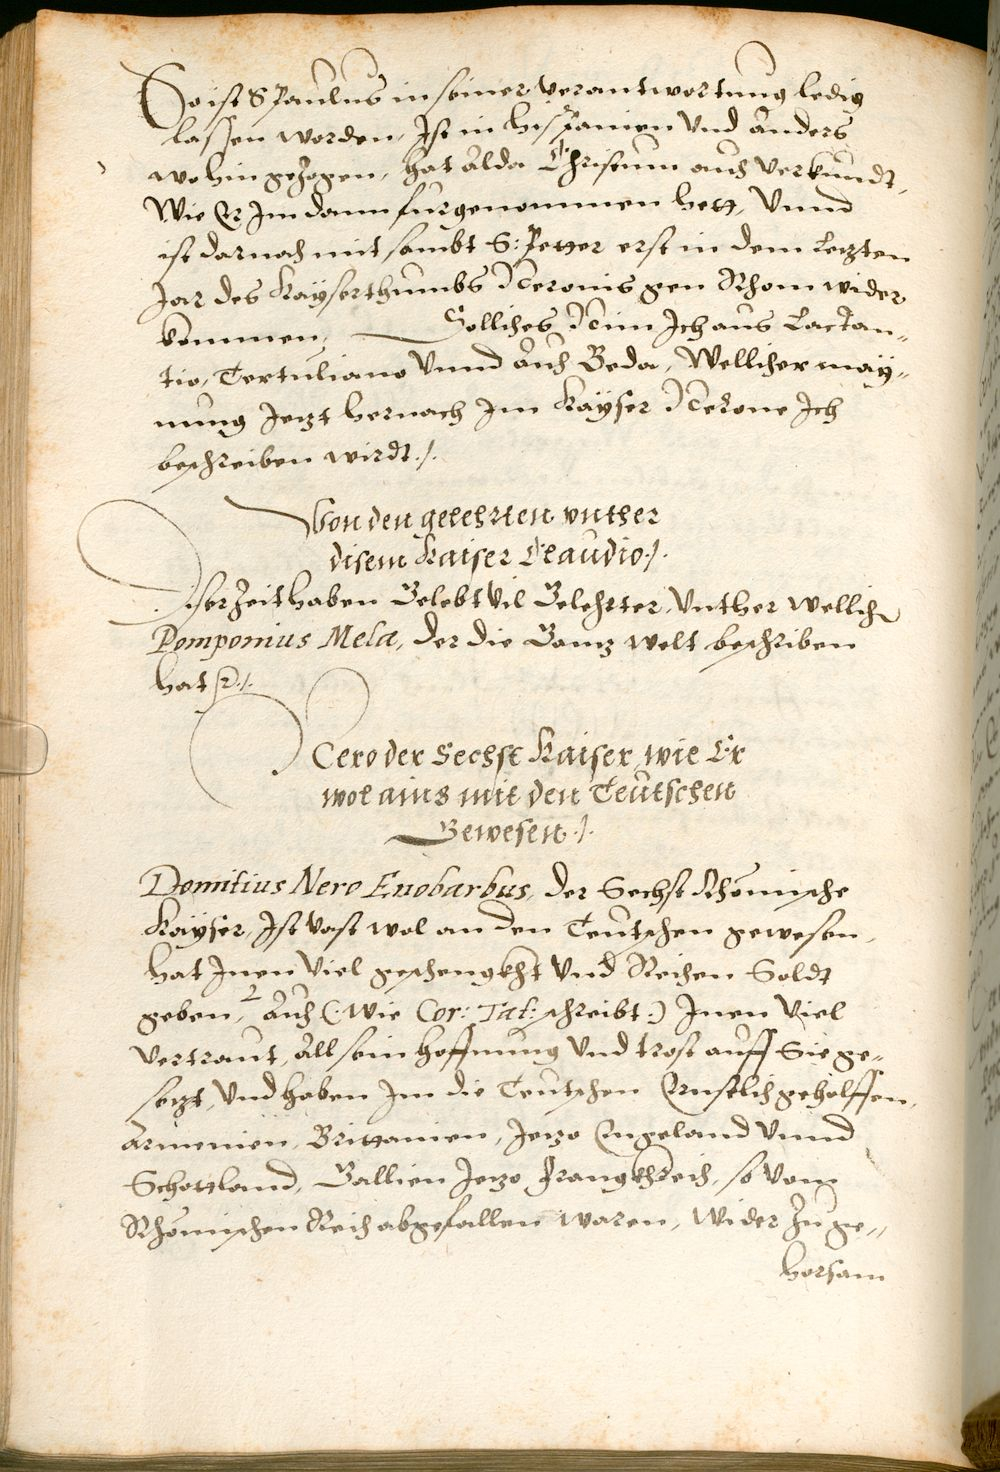 So ist S Paulus in seiner verantwortung ledig
lassen worden, Ist in hispanien Vnd anders
wo hin gezogen, hat alda Christum auch verkundt,
Wie Er Im dann furgenommen hett, Vnnd
ist darnach mit sambt S: Petter erst in dem Letzten
Jar des Kayserthumbs Neronis gen Rhom wider
kommen, Solliches Nim Ich aus Lactan„
tio, Tertuliano Vnnd auch Beda, Wellicher may„
nung Jetzt hernach Im Kayser Nerone Ich
beschreiben wirdt./.
Von den gelehrten vnther
disem Kaiser Claudio./.
Diser Zeit haben Gelebt Vil Gelehrter, Vnther wellich
Pomponius Mela, der die Gantz welt beschriben
hat ./.
Nero der Sechst Kaiser, wie Er
wol ains mit den Teutschen
Gewesen./.
Domitius Nero Enobarbus, der Sechst Rhömische
Kayser, Ist Vast wol an den Teutschen gewesen,
hat Inen Viel geschengkht Vnd Reichen Soldt
geben, 2 Auch (: wie Cor: Tat: schreibt :) Inen Viel
Vertraut, all sein hoffnung Vnd trost auff Sie ge„
setzt, Vnd haben Im die Teutschen Ernstlich geholffen,
Armenien, Brittanien, Jetzo Engeland Vnnd
Schottland, Gallien Jetzo Frangkhreich, so vom
Rhömischen Reich abgefallen waren, wider Zu ge„
horsam